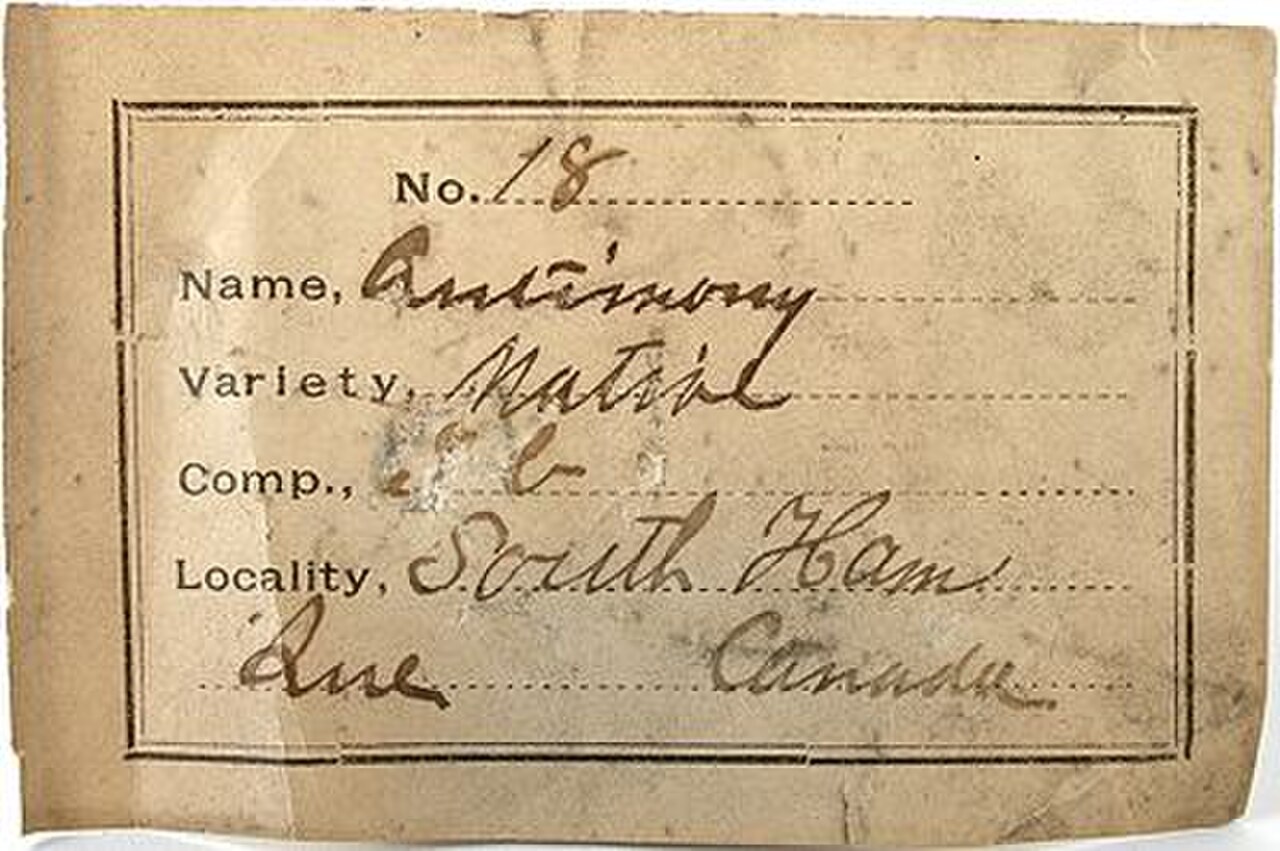 No. 18
Name, Antimony
Variety, Native
Comp.,
Locality, South Ham
Que Canada